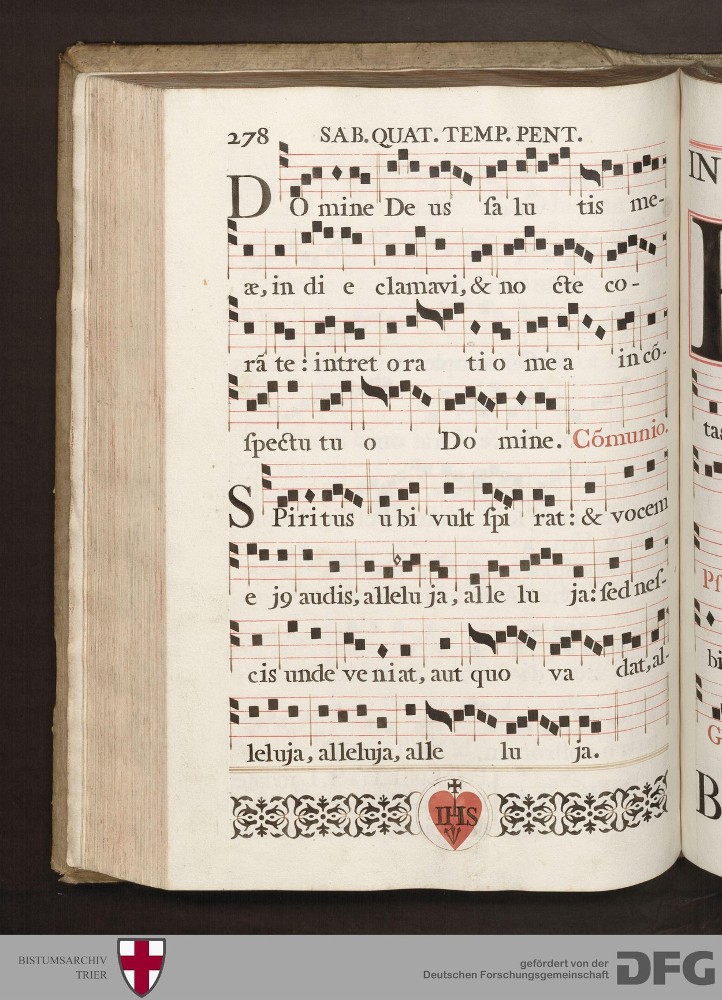 278 SAB. QUAT. TEMP. PENT.
DOmine Deus ſalutis me-
æ, in die clamavi, & nocte co-
rã te: intret oratio mea in cõ-
ſpectu tuo Domine. Cõmunio.
SPiritus ubi vult ſpirat: & vocem
ejꝰ audis, alleluja, alleluja: ſed neſ-
cis unde veniat, aut quo vadat, al-
leluja, alleluja, alleluja.
IHS
IN
tas
Pſ
bi
G
B
BISTUMSARCHIV
TRIER
gefördert von der
Deutschen Forschungsgemeinschaft
DFG